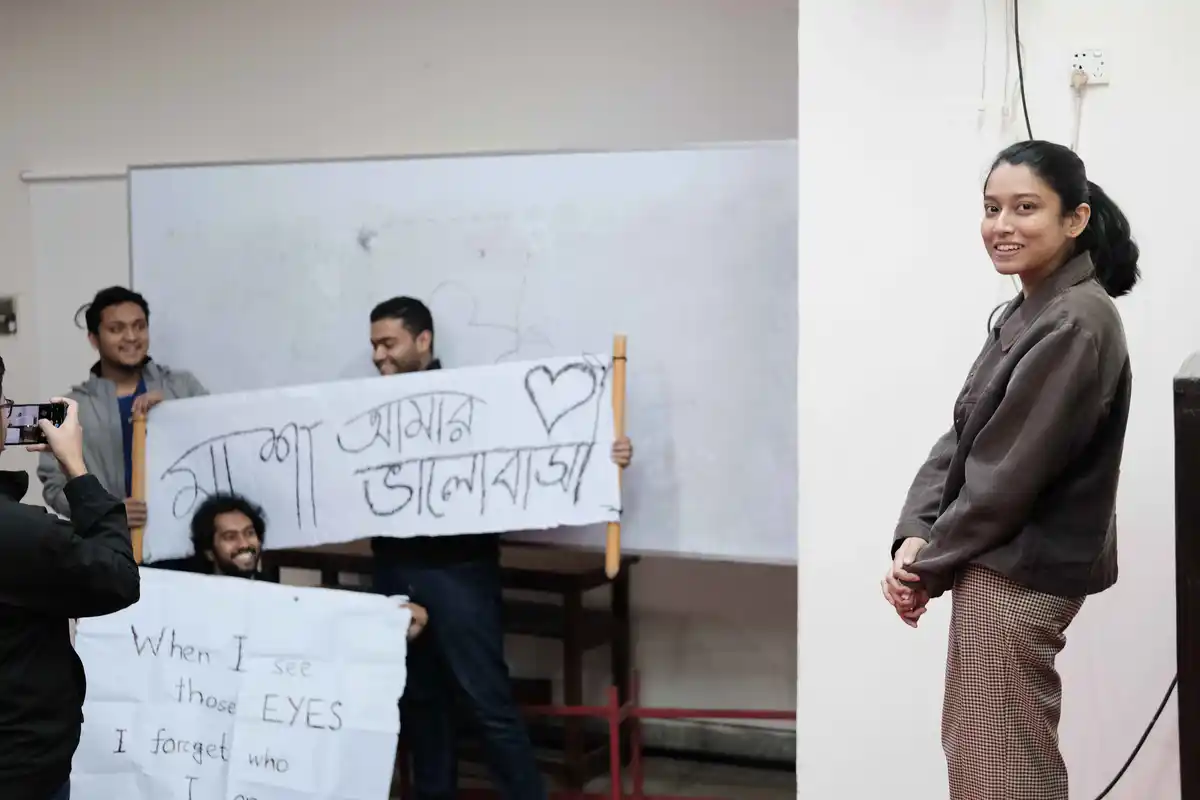 মাশা আমার
ভালোবাসা
When I see
those EYES
I forget who
I